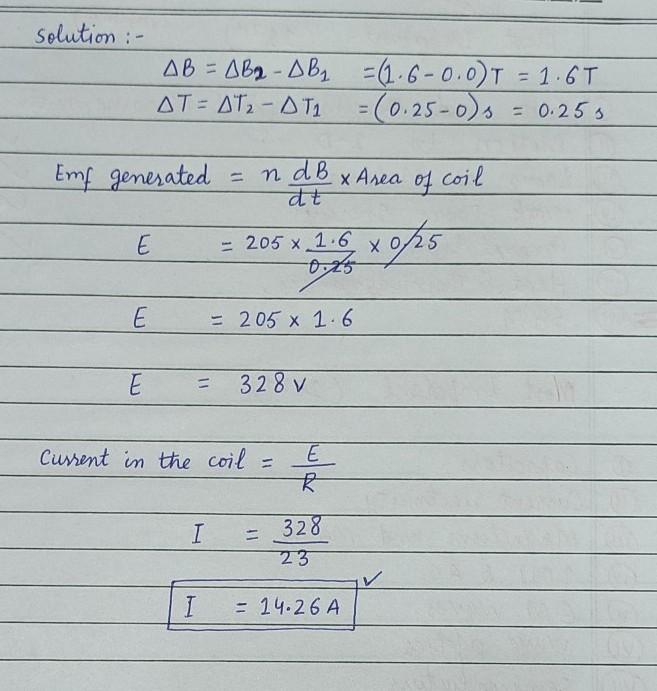 Solution :-
ΔB = ΔB2 - ΔB1 = (1.6 - 0.0) T = 1.6 T
ΔT = ΔT2 - ΔT1 = (0.25 - 0) s = 0.25 s
Emf generated = n dB/dt × Area of coil
E = 205 × 1.6/0.25 × 0.25
E = 205 × 1.6
E = 328 v
Current in the coil = E/R
I = 328/23
I = 14.26 A ✓